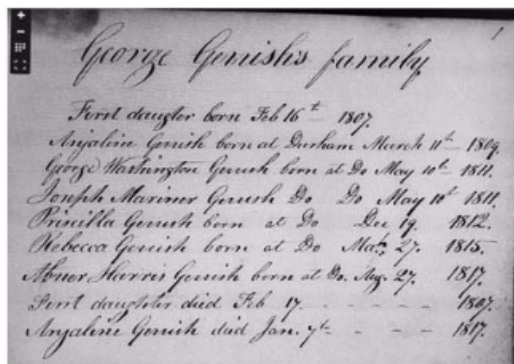 1
George Gerrish's family
First daugter born Feb 16th 1807.
Anjaline Gerrish born at Durham March 11th 1809.
George Washington Gerrish born at Do May 10th 1811.
Joseph Mariner Gerrish Do Do May 10th 1811.
Priscilla Gerrish born at Do Dec 19. 1812.
Rebecca Gerrish born at Do Mar. 27. 1815.
Abner Harris Gerrish born at Do. Aug. 27. 1817.
First daughter died Feb 17. - - - - - 1807.
Anjaline Gerrish died Jan. 7th - - - 1817.